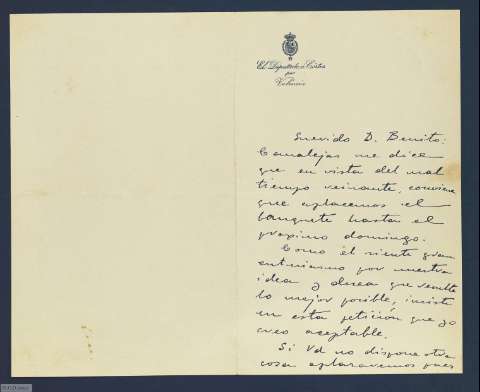 El Diputado á Cortes
por
Valencia
Querido D. Benito:
Canalejas me dice
que en vista del mal
tiempo reinante, conviene
que aplacemos el
banquete hasta el
proximo domingo.
Como él siente gran
entusiasmo por nuestra
idea y desea que resulte
lo mejor posible, insiste
en esta petición que yo
creo aceptable.
Si Vd no dispone otra
cosa aplazaremos pues